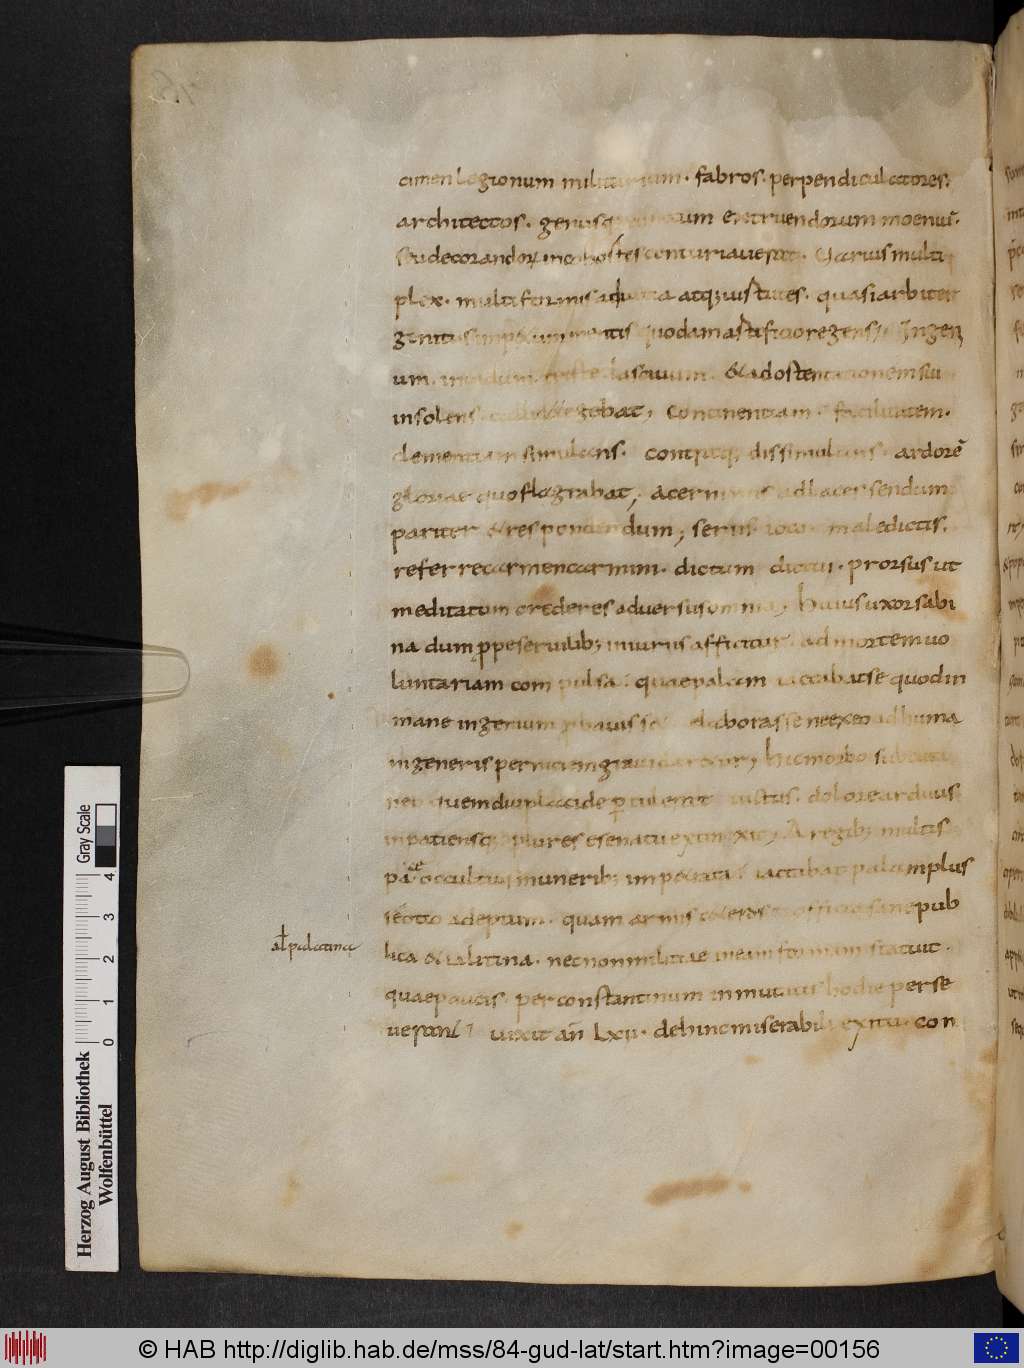 cimen legionum militarium. fabros. perpendiculatores.
architectos. genusq; cunctum extruendorum moeniū.
seu decorandorū inco hortes centuriauerat. Uarius multi
plex. multiformis ad atq; uirtutes. quasi arbiter
genitus impetum mentis quodam artificio regens; Ingeni
um. inuidum. triste. lasciuum. & ad ostentationem sui
insolens. tegebat; Continentiam. facilitatem.
clementiam simulans. contraq; dissimulans. ardorē
gloriae quo flagrabat; acer nimis ad lacessendum
pariter & respondendum; seriis ioco maledictis.
referre carmen carmini. dictum dictui. prorsus ut
meditatum crederes aduersus omnia; Huius uxor sabi
na dum ꝓpe seruilib; iniuriis afficitur. ad mortem uo
luntariam compulsa. quae palam iactabat se quod in
mane ingenium elaborasse ne ex eo ad huma
ni generis perniciem grauidaretur; hic morbo subcuta
neo quem diu placide ꝑtulerat uictus. dolore ardens
inpatiensq; plures e senatu extinxit; A regib; multis
pace occultius munerib; impetrata iactabat palam plus
se otio adeptum. quam armis ceteros officia sane pub
lica & ialitina. nec non militiae in eam formam statuit.
quae paucis per constantinum inmutatis hodie perse
uerant uixit an̄ Lxii. dehinc miserabili exitu con
al palatina
Gray Scale
0 1 2 3 4
Herzog August Bibliothek
Wolfenbüttel
© HAB http://diglib.hab.de/mss/84-gud-lat/start.htm?image=00156